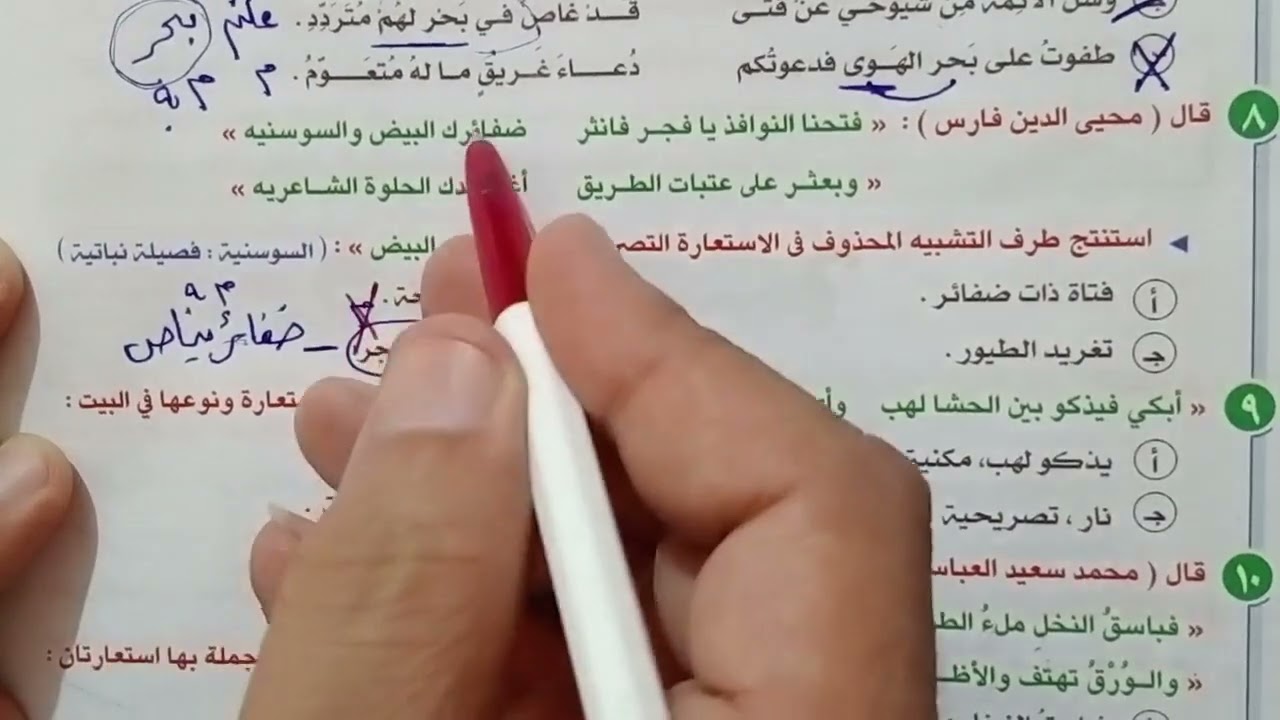 وسل الأئمة من شيوخي عن فتى قد غاص في بحر لهم متردد . علم بحر
طفوتُ على بَحر الهَوى فدعوتُكم دُعاءَ غَريقٍ ما لهُ مُتعَوَّمُ . م م به
٨ قال ( محيى الدين فارس ) : « فتحنا النوافذ يا فجر فانثر ضفائرك البيض والسوسنيه »
« وبعثر على عتبات الطريق الحلوة الشاعريه »
استنتج طرف التشبيه المحذوف فى الاستعارة البيض » : ( السوسنية : فصيلة نباتية )
أ فتاة ذات ضفائر .
جـ تغريد الطيور . ضفائر
٩ « أبكي فيذكو بين الحشا لهب ونوعها في البيت :
أ يذكو لهب، مكنية
جـ نار ، تصريحية
١٠ قال ( محمد سعيد
« فباسقُ النخلِ ملءُ
« والوُرْقُ تهتف
جملة بها استعارتان :